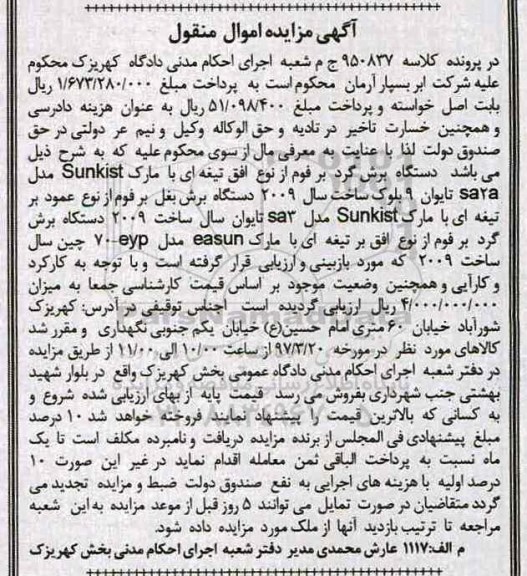 آگهی مزایده اموال منقول
در پرونده کلاسه ۹۵۰۸۳۷ ج م شعبه اجرای احکام مدنی دادگاه کهریزک محکوم
علیه شرکت ابر بسپار آرمان محکوم است به پرداخت مبلغ ۱/۶۷۳/۲۸۰/۰۰۰ ریال
بابت اصل خواسته و پرداخت مبلغ ۵۱/۰۹۸/۴۰۰ ریال به عنوان هزینه دادرسی
و همچنین خسارت تاخیر در تادیه و حق الوکاله وکیل و نیم عر دولتی در حق
صندوق دولت لذا با عنایت به معرفی مال از سوی محکوم علیه که به شرح ذیل
می باشد دستگاه برش گرد بر فوم از نوع افق تیغه ای با مارک Sunkist مدل
sa۲a تایوان ۹ بلوک ساخت سال ۲۰۰۹ دستگاه برش بغل بر فوم از نوع عمود بر
تیغه ای با مارک Sunkist مدل sa۳ تایوان سال ساخت ۲۰۰۹ دستکاه برش
گرد بر فوم از نوع افق بر تیغه ای با مارک easun مدل eyp-۷۰ چین سال
ساخت ۲۰۰۹ که مورد بازبینی و ارزیابی قرار گرفته است و با توجه به کارکرد
و کارآیی و همچنین وضعیت موجود بر اساس قیمت کارشناسی جمعا به میزان
۴/۰۰۰/۰۰۰/۰۰۰ ریال ارزیابی گردیده است اجناس توقیفی در آدرس: کهریزک
شورآباد خیابان ۶۰ متری امام حسین(ع) خیابان یکم جنوبی نگهداری و مقرر شد
کالاهای مورد نظر در مورخه ۹۷/۳/۲۰ از ساعت ۱۰/۰۰ الی ۱۱/۰۰ از طریق مزایده
در دفتر شعبه اجرای احکام مدنی دادگاه عمومی بخش کهریزک واقع در بلوار شهید
بهشتی جنب شهرداری بفروش می رسد قیمت پایه از بهای ارزیابی شده شروع و
به کسانی که بالاترین قیمت را پیشنهاد نمایند فروخته خواهد شد ۱۰ درصد
مبلغ پیشنهادی فی المجلس از برنده مزایده دریافت و نامبرده مکلف است تا یک
ماه نسبت به پرداخت الباقی ثمن معامله اقدام نماید در غیر این صورت ۱۰
درصد اولیه با هزینه های اجرایی به نفع صندوق دولت ضبط و مزایده تجدید می
گردد متقاضیان در صورت تمایل می توانند ۵ روز قبل از موعد مزایده به این شعبه
مراجعه تا ترتیب بازدید آنها از ملک مورد مزایده داده شود.
م الف:۱۱۱۷ عارش محمدی مدیر دفتر شعبه اجرای احکام مدنی بخش کهریزک